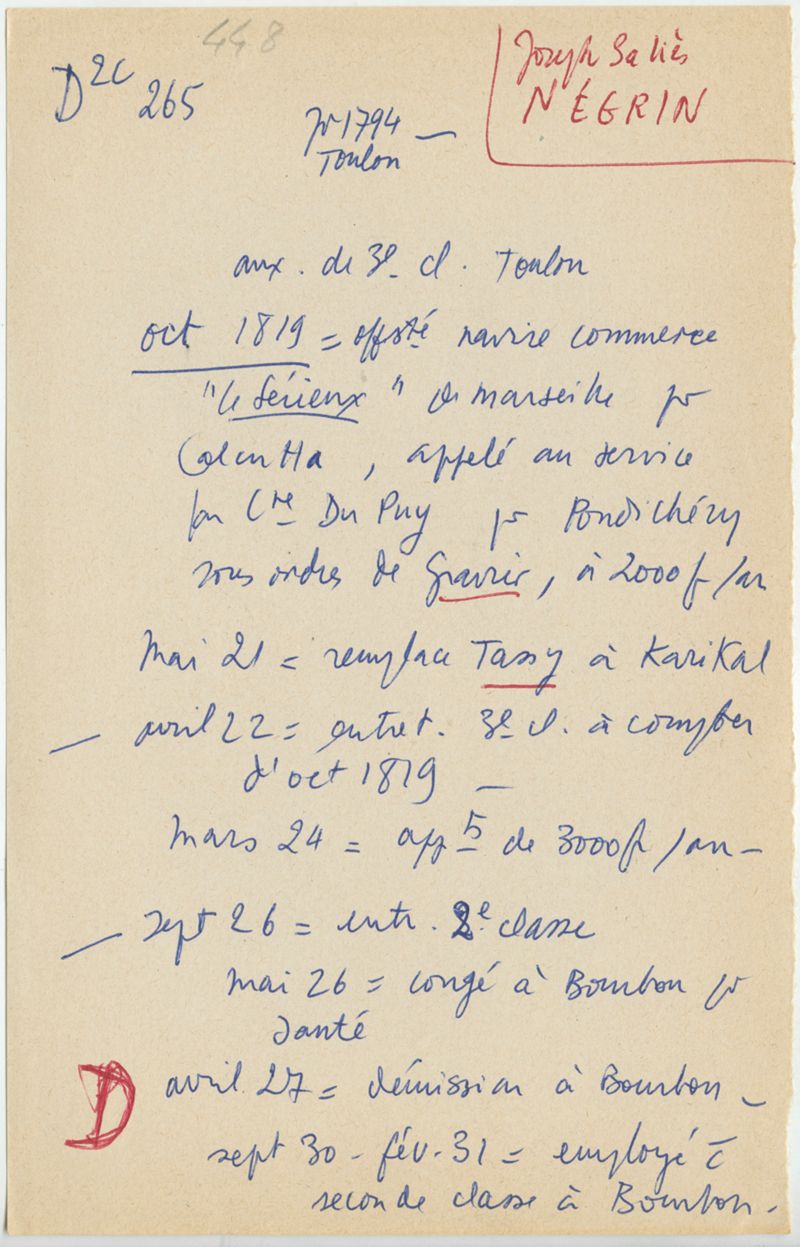 448
D2c 265
Joseph Saliès
NÉGRIN
1794 —
Toulon
aux. de 3e cl. Toulon
oct 1819 = navire commerce
"le Sérieux" de Marseille pr
Calcutta, appelé au service
par Cte Du Puy pr Pondichéry
sous ordres de Gravier, à 2000f/an
Mai 21 = remplace Tassy à Karikal
— avril 22 = entret. 3e cl. à compter
d'oct 1819 —
Mars 24 = appts de 3000f/an —
— sept 26 = entr. 2e classe
Mai 26 = congé à Bourbon pr
santé
D avril 27 = démission à Bourbon —
sept 30 - fév. 31 = employé
seconde classe à Bourbon.